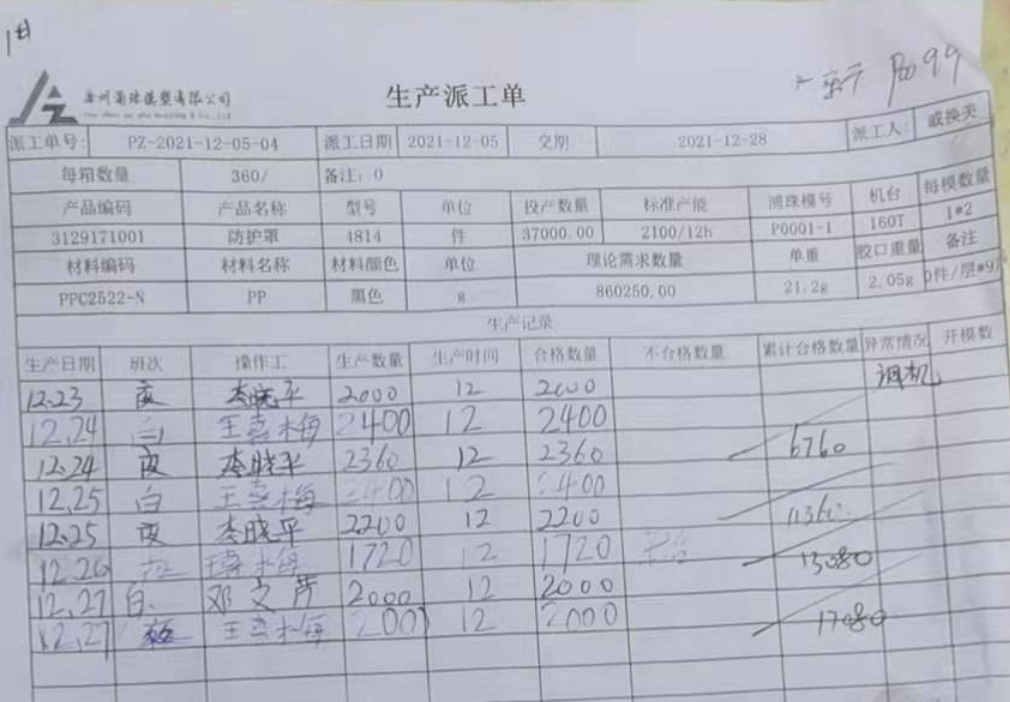 1#
生产派工单
派工单号: PZ-2021-12-05-04 派工日期 2021-12-05 交期 2021-12-28 派工人: 戚换关
每箱数量 360/ 备注: 0
产品编码 产品名称 型号 单位 投产数量 标准产能 浦珠模号 机台 每模数量
3129171001 防护罩 4814 件 37000.00 2100/12h P0001-1 160T 1*2
材料编码 材料名称 材料颜色 单位 理论需求数量 单重 胶口重量 备注
PPC2522-N PP 黑色 g 860250.00 21.2g 2.05g 件/层*9
生产记录
生产日期 班次 操作工 生产数量 生产时间 合格数量 不合格数量 累计合格数量 异常情况 开模数
12.23 夜 李晓平 2000 12 2000 调机
12.24 白 王喜梅 2400 12 2400
12.24 夜 李晓平 2360 12 2360 6760
12.25 白 王喜梅 2400 12 2400
12.25 夜 李晓平 2200 12 2200 11360
12.26 1720 12 1720 13080
12.27 白. 邓文芹 2000 12 2000
12.27 王喜梅 2000 12 2000 17080